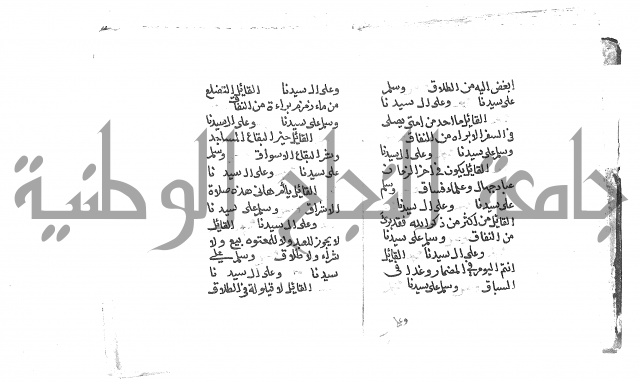 ابغض اليه من الطلاق وسلم
على سيدنا وعلى ال سيدنا
القايل ما احد من امتى يصلى
في السفر الا براه من النفاق
وسلم على سيدنا وعلى ال سيدنا
القايل يكون فى اخر الزمان
عباد جهال وعلماء فساق وسلم
على سيدنا وعلى ال سيدنا
القايل من اكثر من ذكر الله فقد برئ
من النفاق وسلم على سيدنا
وعلى ال سيدنا القايل
انتم اليوم في المضمار وغدا فى
السباق وسلم على سيدنا
وعلى
وعلى ال سيدنا القايل التضلع
من ماء زمزم براءة من النفاق
وسلم على سيدنا وعلى ال سيدنا
القايل خير البقاع المساجد
وشر البقاع الاسواق وسلم
على سيدنا وعلى ال سيدنا
القايل يا ام هانى هذه صلاة
الاشراق وسلم على سيدنا
وعلى ال سيدنا القايل
لا يجوز للعبد ولا للمعتوه بيع ولا
شراء ولا طلاق وسلم على
سيدنا وعلى ال سيدنا
القايل لا قيلولة فى الطلاق
جامعة النجاح الوطنية